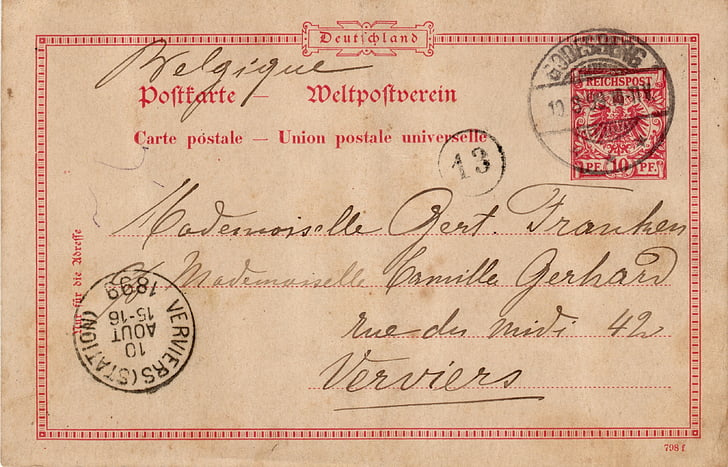 Deutschland
Belgique
Postkarte — Weltpostverein
Carte postale — Union postale universelle
GODESBERG
REICHSPOST
10 PF. 10 PF.
13
Mademoiselle Gert. Franken
Mademoiselle Camille Gerhard
rue du midi 42
Verviers
Nur für die Adresse
VERVIERS (STATION)
10
AOUT
15-16
1899
798 f